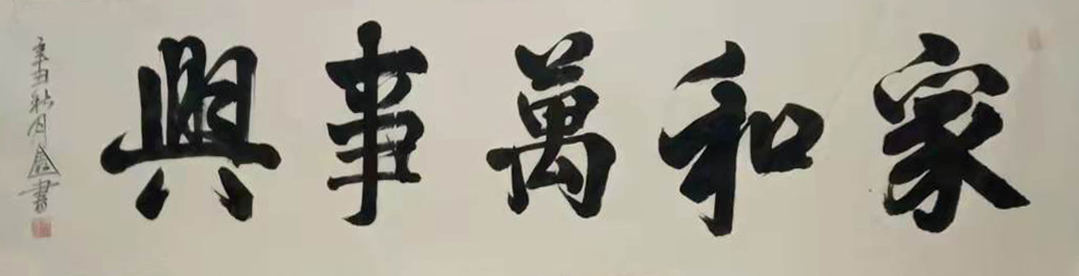 家和萬事興
辛丑秋月鑫書